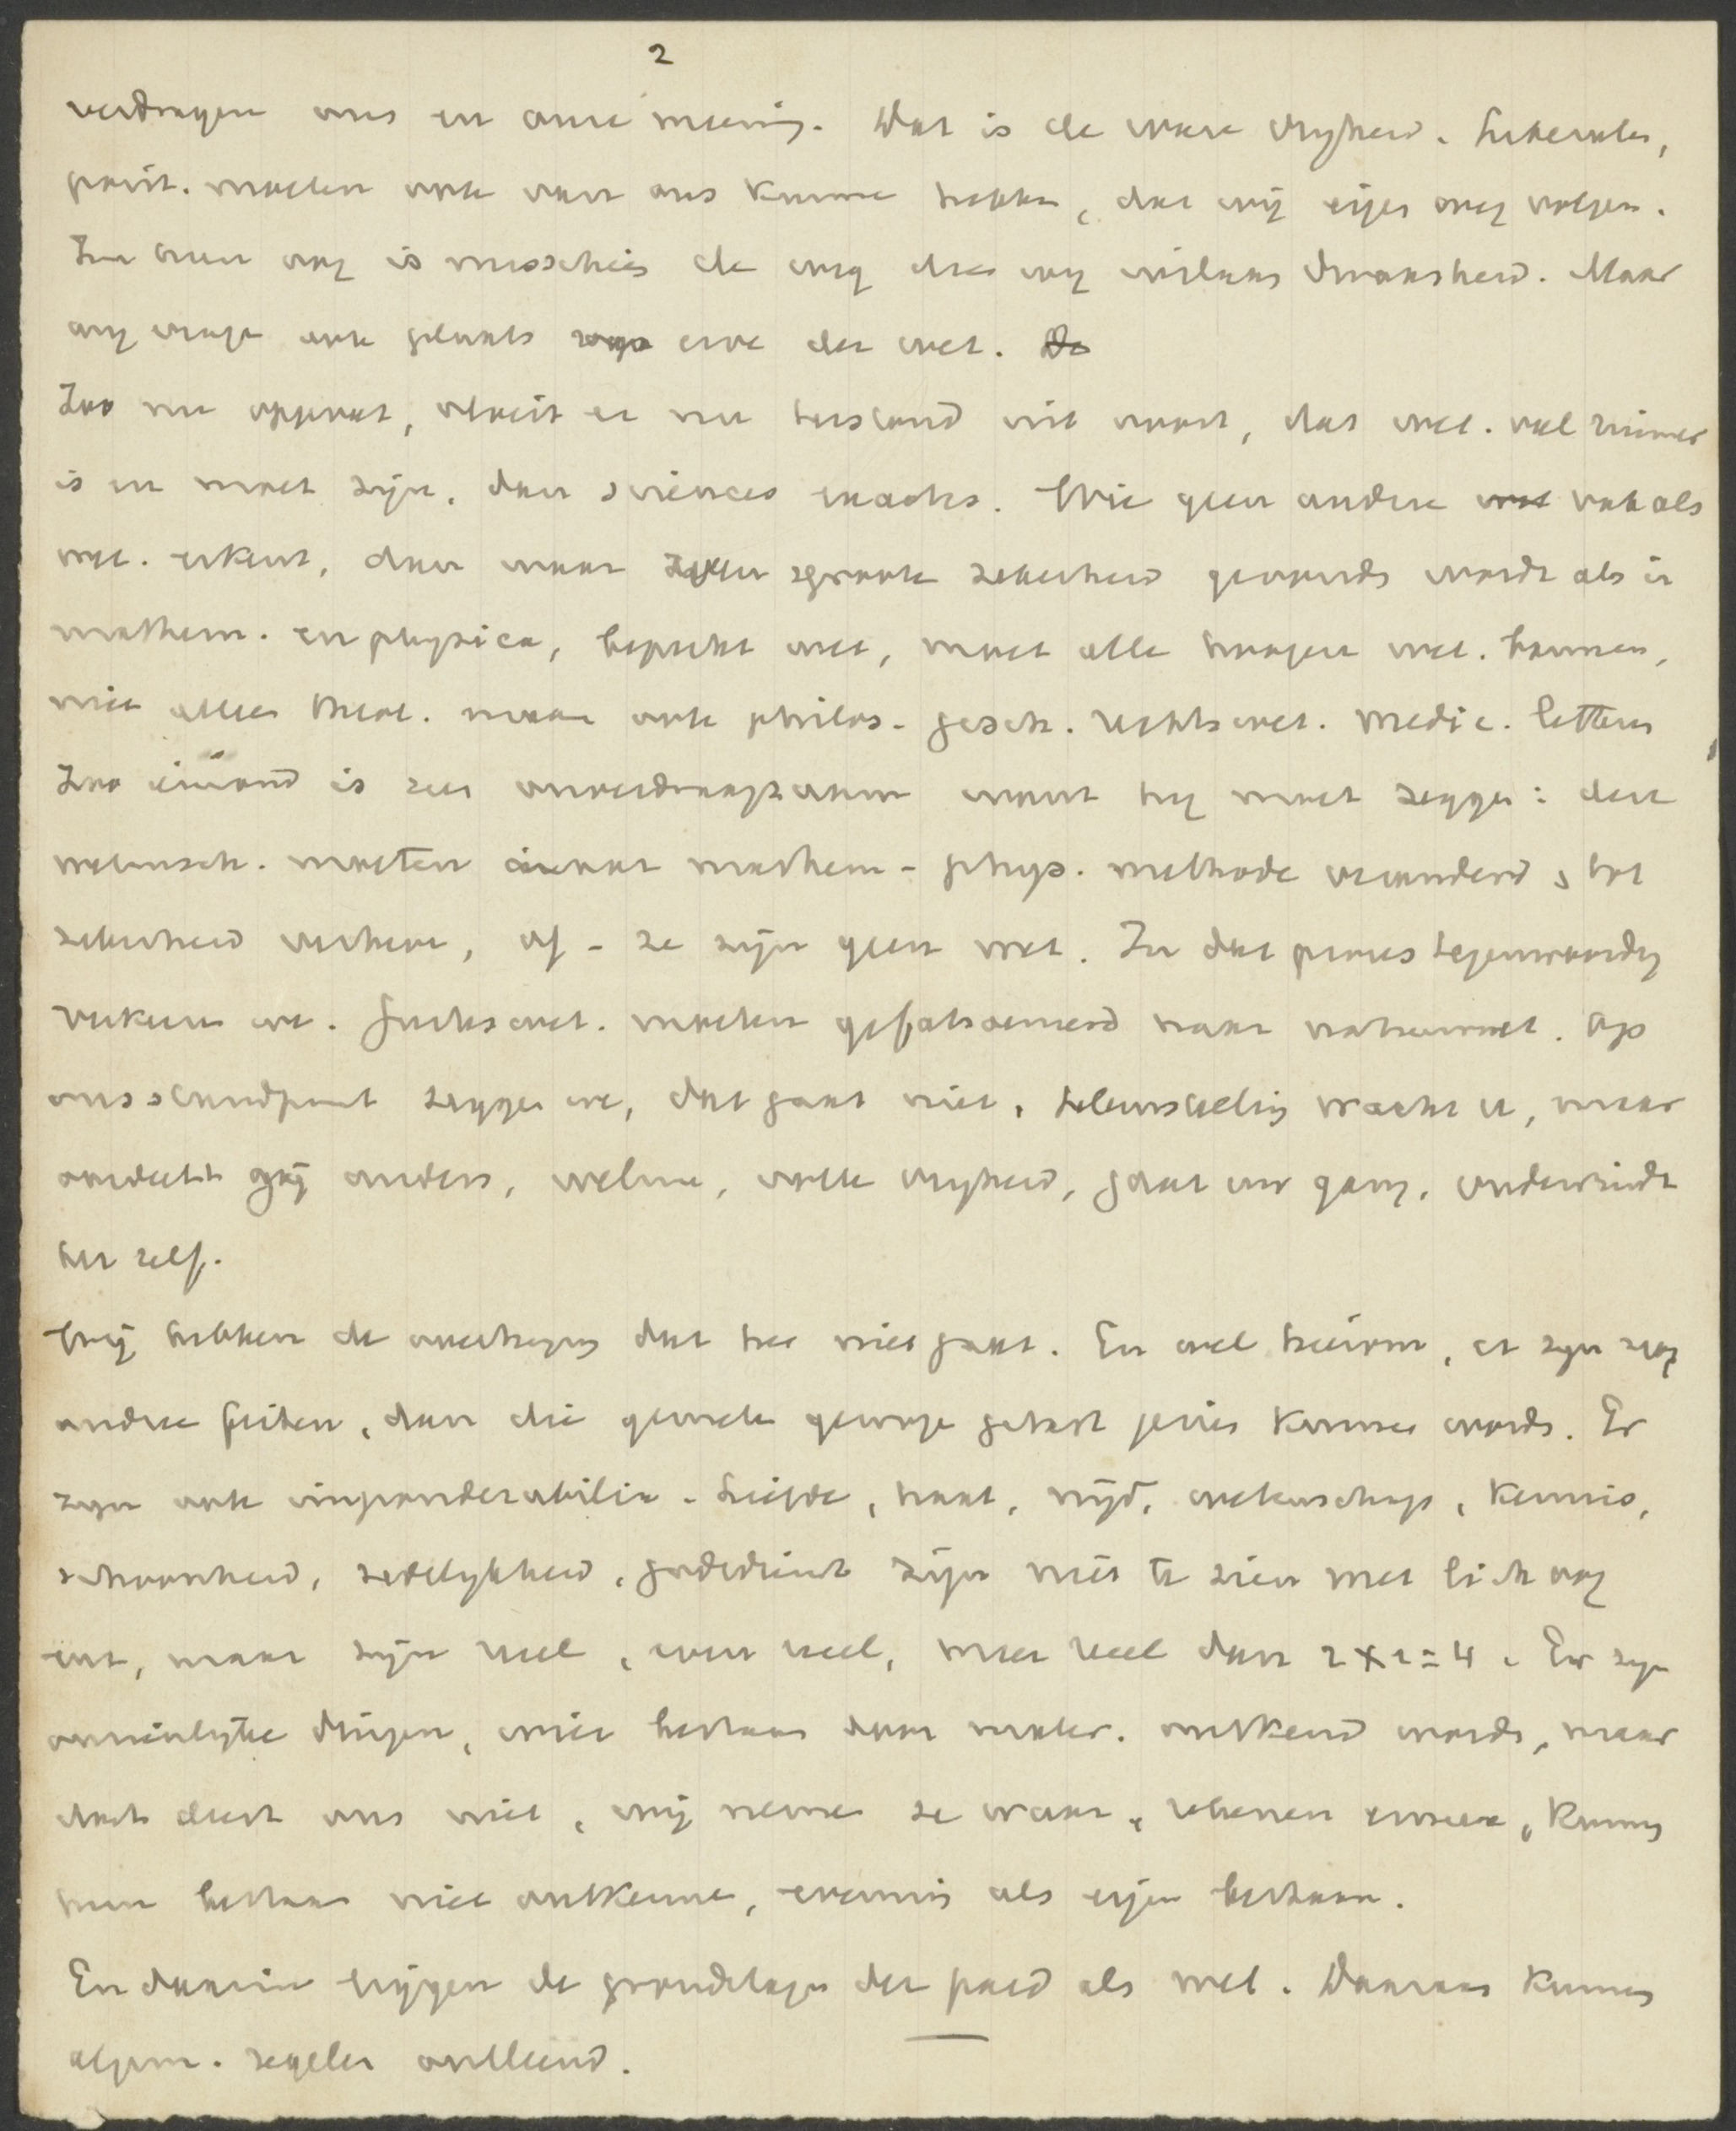 2
verdragen ons en onze mening. Dat is de ware vrijheid. Liberalen,
posit. moeten ook van ons kunne hebben, dat wij eigen weg volgen.
In hun oog is misschien de weg die wij inslaan dwaasheid. Maar
wij vrage ook plaats voor erve der wet. De
Zoo nu opgevat, vloeit er nu terstond uit voort, dat wet. veel ruimer
is en moet zijn, dan sciences exactes. Wie geen andere wet vak als
wet. erkent, dan waar zoo groote zekerheid gevonden wordt als in
mathem. en physica, beperkt wet, moet alle hoogere wet. bannen,
niet alleen theol. maar ook philos. gesch. rechtswet. medic. letteren
Zoo iemand is zeer onverdraagzaam want hij moet zeggen: deze
wetensch. moeten naar mathem- phys. methode veranderd, tot
zekerheid verheven, of - ze zijn geen wet. In dat proces tegenwoordig
verkeeren we. Geesteswet. moeten gefatsoeneerd naar natuurwet. Op
ons standpunt zeggen we, dat gaat niet, teleurstelling wacht u, maar
oordeelt gij anders, welnu, volle vrijheid, gaat uw gang, ondervindt
het zelf.
Wij hebben de overtuiging dat het niet gaat. En wel hierom, er zijn nog
andere feiten, dan die gemeten gewogen getast gezien kunnen words. Er
zijn ook imponderabilia - Liefde, haat, nijd, wetenschap, kennis,
schoonheid, zedelijkheid, godsdienst zijn niet te zien met lich oog
enz, maar zijn reëel, even reëel, meer reëel dan 2 x 2 = 4. Er zijn
onzienlijke dingen, wier bestaan door mater. ontkend words, maar
dat deert ons niet, wij nemen ze waar, rekenen ermee, kunnen
hun bestaan niet ontkenne, evenmin als eigen bestaan.
En daarin liggen de grondslagen der paed als wet. Daaraan kunnen
algem. regelen ontleend.